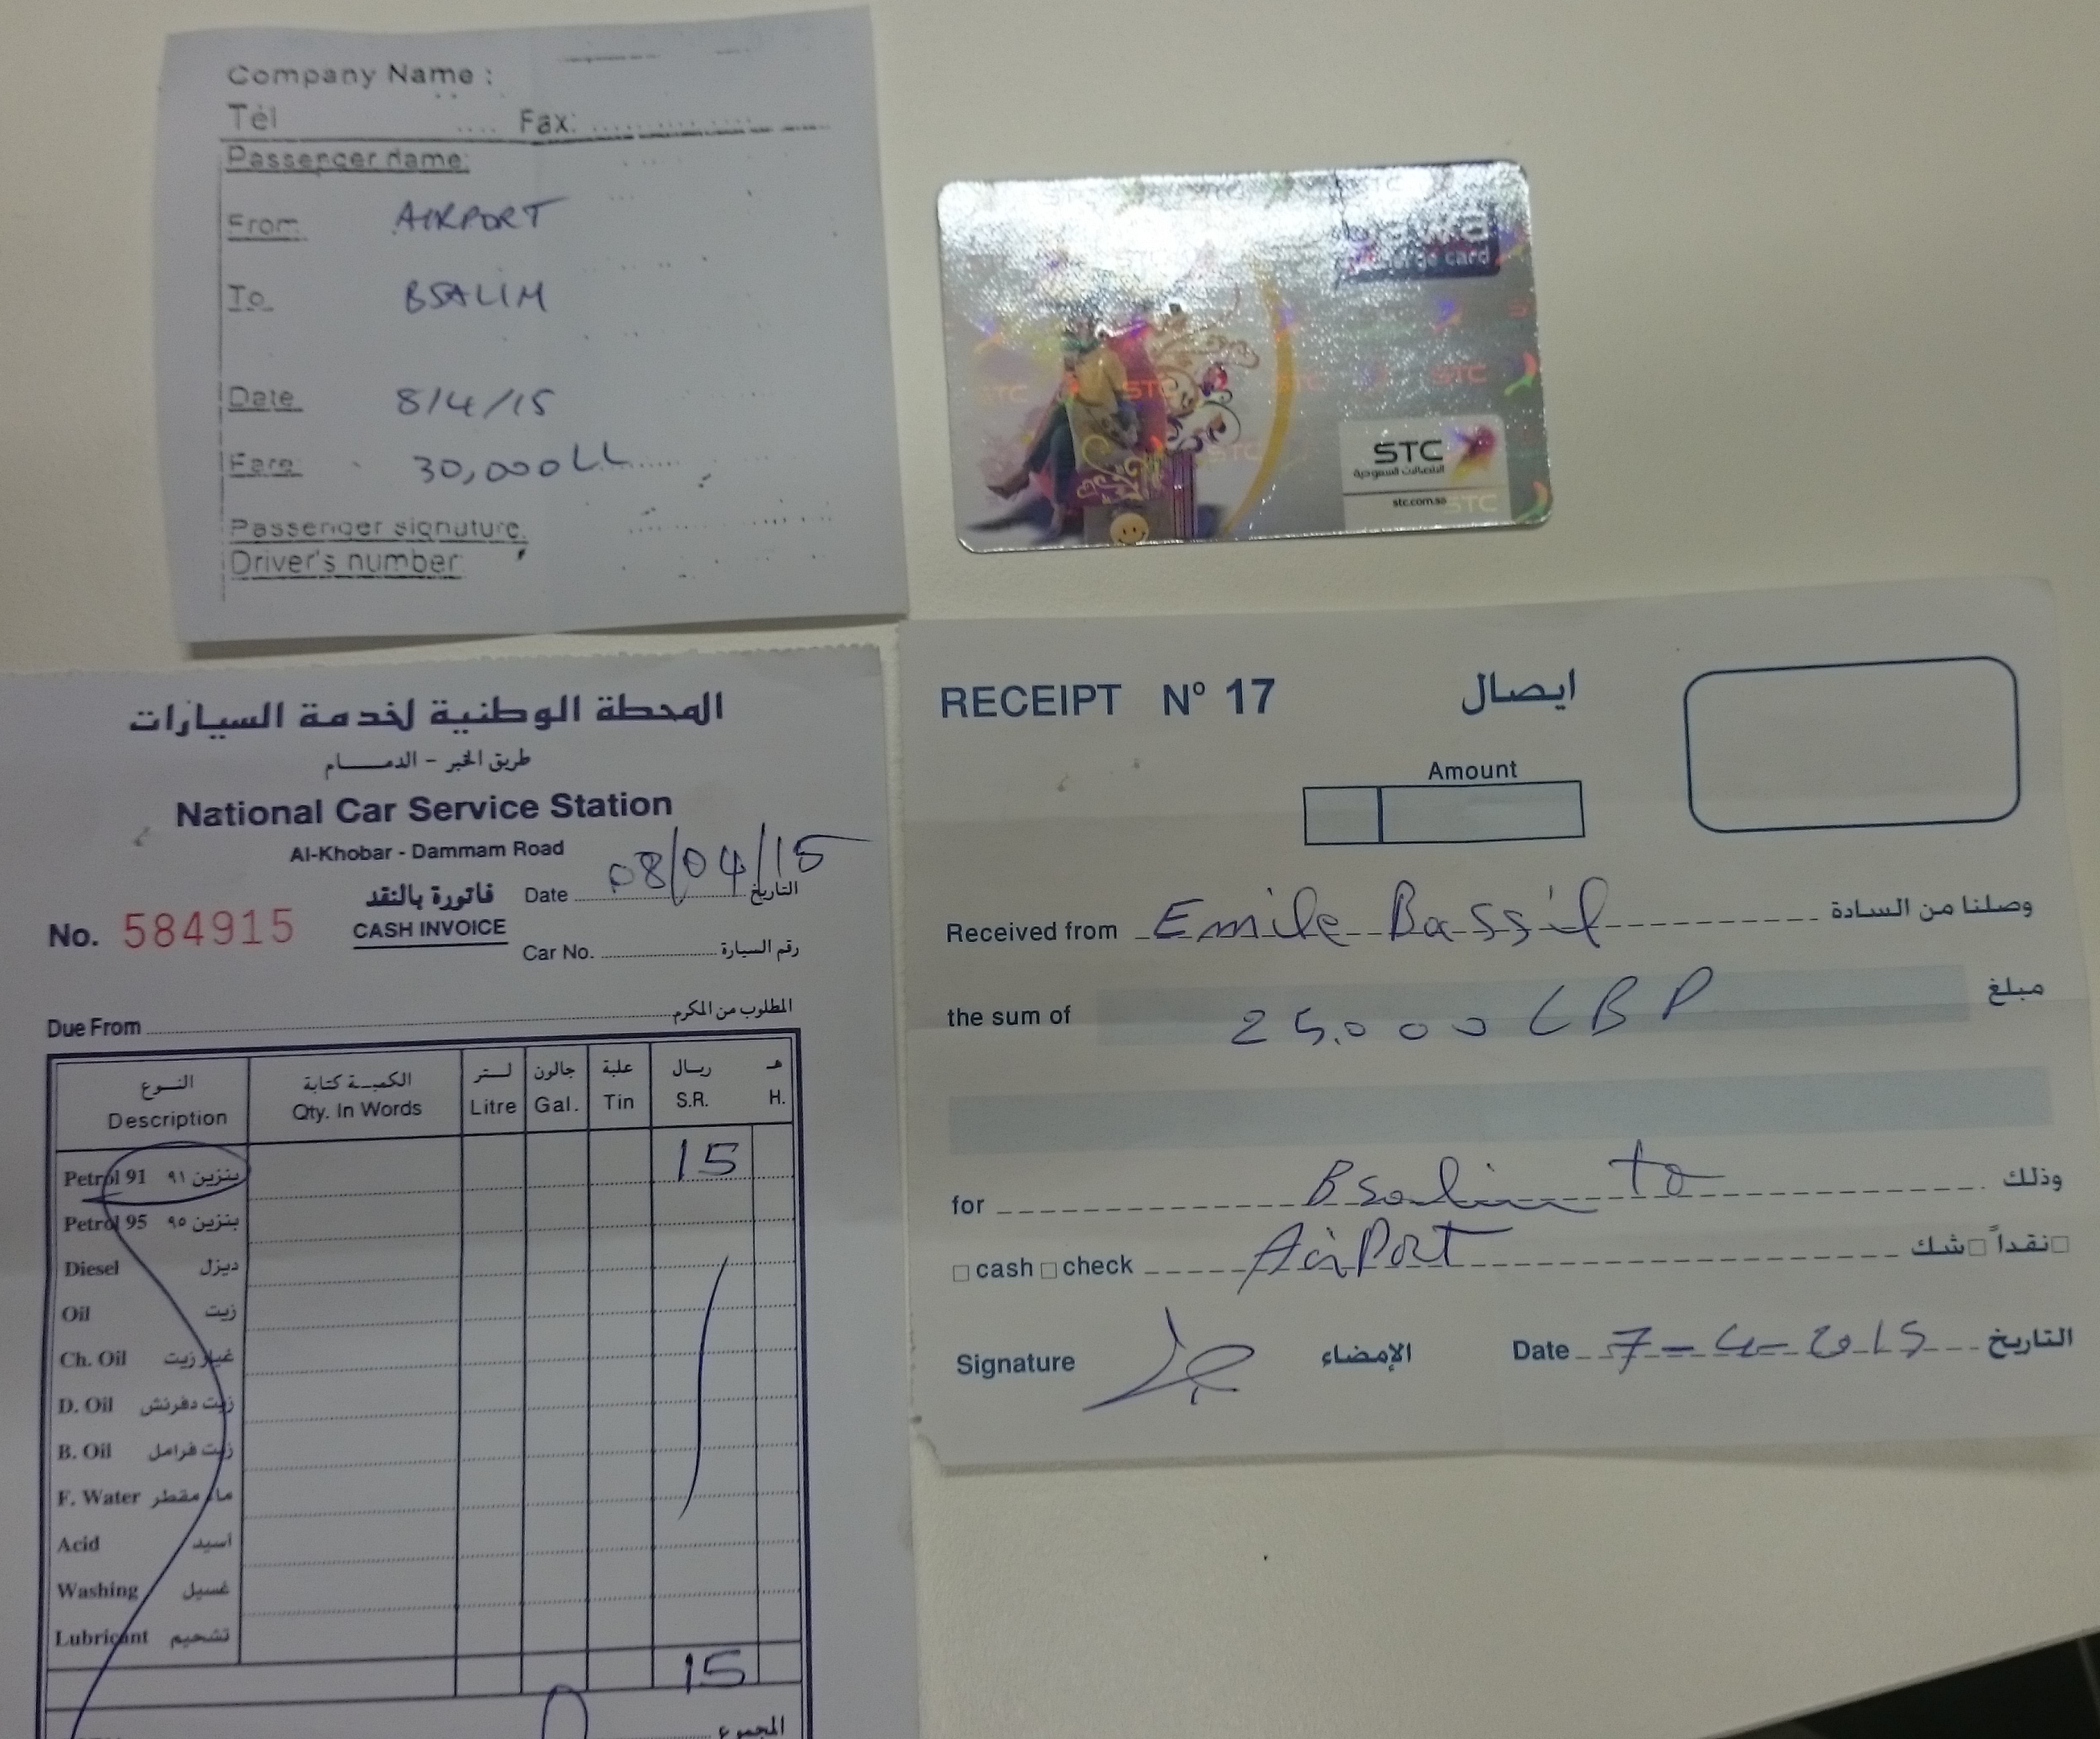 Company Name :
Tel .... Fax: ..........
Passenger name:
From AIRPORT
To BSALIM
Date 8/4/15
Fare 30,000 LL
Passenger signuture:
Driver's number:
STC
الاتصالات السعودية
stc.com.sa
المحطة الوطنية لخدمة السيارات
طريق الخبر - الدمــام
National Car Service Station
Al-Khobar - Dammam Road
فاتورة بالنقد Date 08/04/15 التاريخ
No. 584915 CASH INVOICE
Car No. رقم السيارة
Due From المطلوب من المكرم
النوع الكميـة كتابة لـتر جالون علبة ريـال هـ
Description Qty. In Words Litre Gal. Tin S.R. H.
Petrol 91 بنزين ٩١ 15
Petrol 95 بنزين ٩٥
Diesel ديزل
Oil زيت
Ch. Oil غيار زيت
D. Oil زيت دفرنش
B. Oil زيت فرامل
F. Water ماء مقطر
Acid أسيد
Washing غسيل
Lubricant تشحيم
15
المجموع
RECEIPT Nº 17 ايصال
Amount
Received from Emile Bassil وصلنا من السادة
the sum of 25.000 LBP مبلغ
for Bsalim to وذلك
□ cash □ check AirPort □ نقداً □ شك
Signature الإمضاء Date 7-4-2015 التاريخ